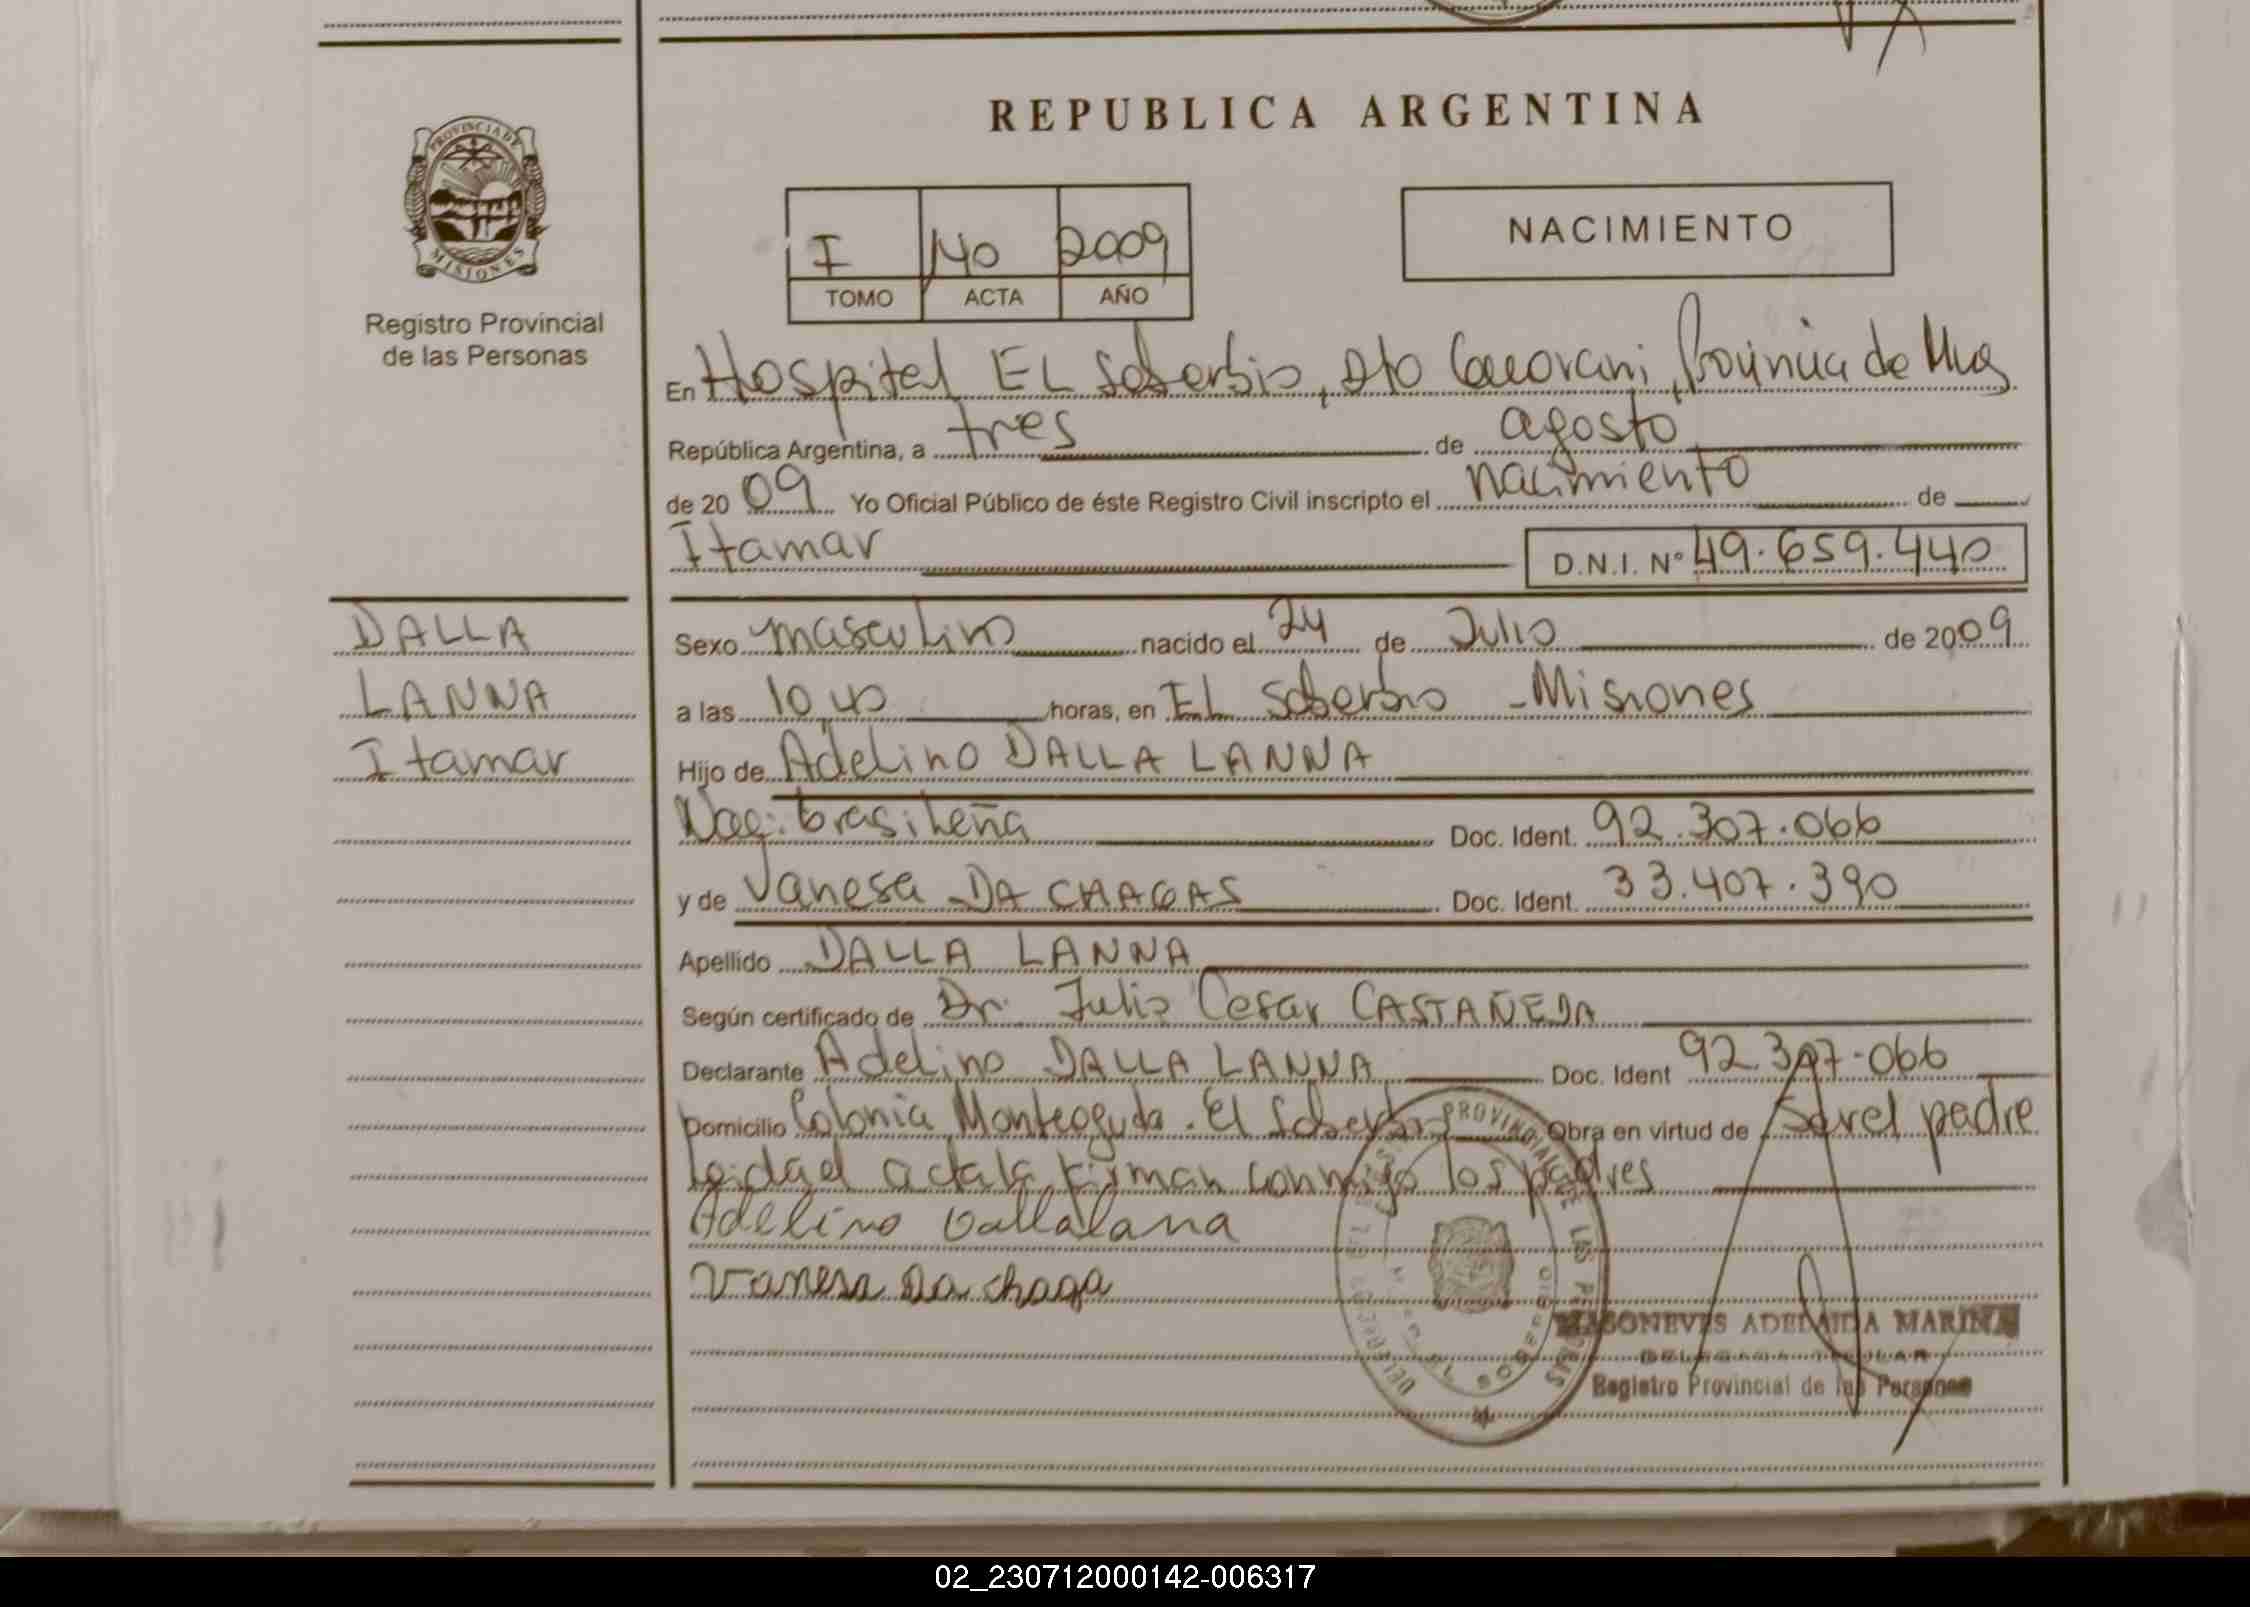 REPUBLICA ARGENTINA
PROVINCIA DE MISIONES
Registro Provincial
de las Personas
I 140 2009
TOMO ACTA AÑO
NACIMIENTO
En Hospital EL Soberbio, Dto Guarani, Provincia de Mnes
República Argentina, a tres de agosto
de 2009 Yo Oficial Público de éste Registro Civil inscripto el nacimiento de
Itamar D.N.I. Nº 49.659.440
DALLA
LANNA
Itamar
Sexo masculino nacido el 24 de Julio de 2009
a las 10,40 horas, en EL Soberbio - Misiones
Hijo de Adelino DALLA LANNA
Nac: brasileña Doc. Ident. 92.307.066
y de Vanesa DA CHAGAS Doc. Ident. 33.407.390
Apellido DALLA LANNA
Según certificado de Dr. Julio Cesar CASTAÑEDA
Declarante Adelino DALLA LANNA Doc. Ident 92.307.066
Domicilio Colonia Monteagudo. El Soberbio Obra en virtud de Ser el padre
Leida el acta la firman conmigo los padres
Adelino Dallalana
Vanesa Da chaga
ADELAIDA MARINA
DELEGADA TITULAR
Registro Provincial de las Personas
02_230712000142-006317